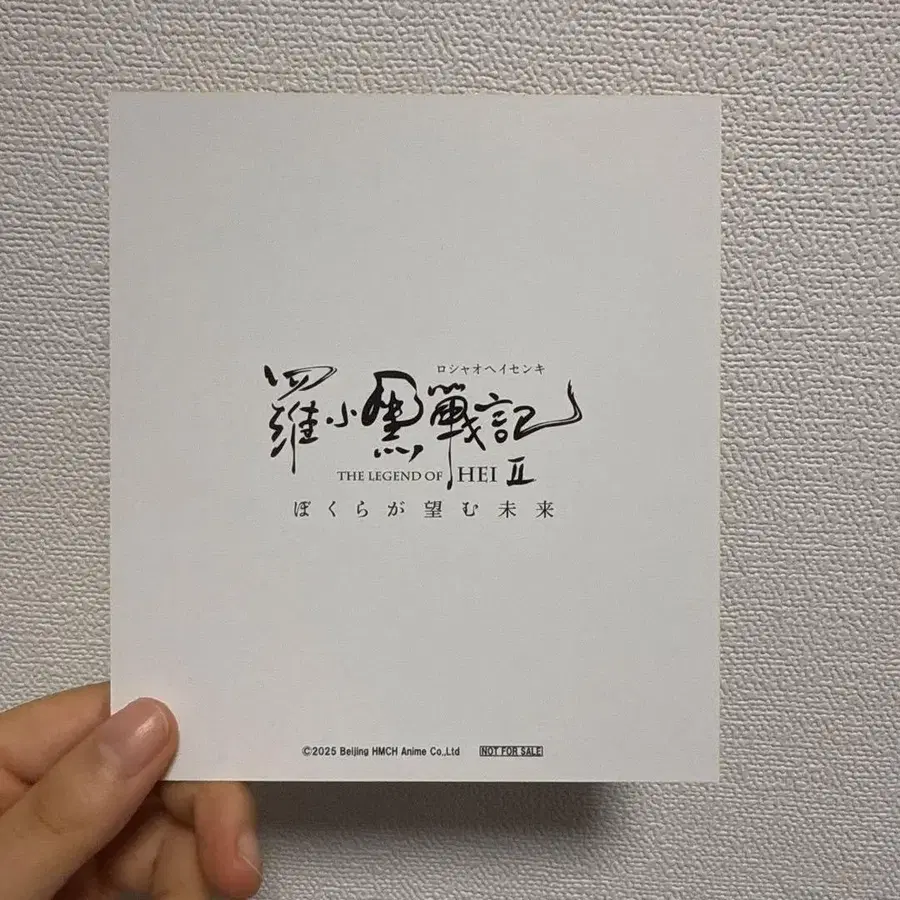 ロシャオヘイセンキ
羅小黒戰記
THE LEGEND OF HEI Ⅱ
ぼくらが望む未来
©2025 Beijing HMCH Anime Co.,Ltd NOT FOR SALE